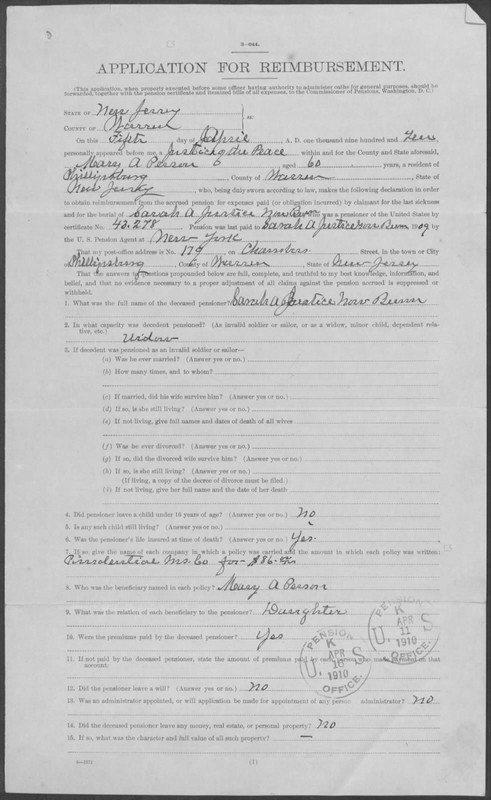 3—044.
APPLICATION FOR REIMBURSEMENT.
(This application, when properly executed before some officer having authority to administer oaths for general purposes, should be
forwarded, together with the pension certificate and itemized bills of all expenses, to the Commissioner of Pensions, Washington, D. C.)
STATE OF New Jersey
COUNTY OF Warren } ss:
On this Fifth day of April, A. D. one thousand nine hundred and Ten,
personally appeared before me, a Justice of the Peace within and for the County and State aforesaid,
Mary A Person, aged 60 years, a resident of
Phillipsburg, County of Warren, State of
New Jersey, who, being duly sworn according to law, makes the following declaration in order
to obtain reimbursement from the accrued pension for expenses paid (or obligation incurred) by claimant for the last sickness
and for the burial of Sarah A Justice Now, who was a pensioner of the United States by
certificate No. 43.278. Pension was last paid to Sarah A Justice Now, 190
by the U. S. Pension Agent at New York
That my post-office address is No. 179, on Chambers Street, in the town or City
Phillipsburg, County of Warren, State of New Jersey
That the answers to questions propounded below are full, complete, and truthful to my best knowledge, information, and
belief, and that no evidence necessary to a proper adjustment of all claims against the pension accrued is suppressed or
withheld.
1. What was the full name of the deceased pensioner? Sarah A Justice Now
2. In what capacity was decedent pensioned? (As invalid soldier or sailor, or as a widow, minor child, dependent rela-
tive, etc.) Widow
3. If decedent was pensioned as an invalid soldier or sailor—
(a) Was he ever married? (Answer yes or no.)
(b) How many times, and to whom?
(c) If married, did his wife survive him? (Answer yes or no.)
(d) If so, is she still living? (Answer yes or no.)
(e) If not living, give full names and dates of death of all wives
(f) Was he ever divorced? (Answer yes or no.)
(g) If so, did the divorced wife survive him? (Answer yes or no.)
(h) If so, is she still living? (Answer yes or no.)
(If living, a copy of the decree of divorce must be filed.)
(i) If not living, give her full name and the date of her death
4. Did pensioner leave a child under 16 years of age? (Answer yes or no.) No
5. Is any such child still living? (Answer yes or no.)
6. Was the pensioner's life insured at time of death? (Answer yes or no.) Yes.
7. If so, give the name of each company in which a policy was carried and the amount in which each policy was written:
Prudential Ins. Co for $86.
8. Who was the beneficiary named in each policy? Mary A Person
9. What was the relation of each beneficiary to the pensioner? Daughter
10. Were the premiums paid by the deceased pensioner? Yes
11. If not paid by the deceased pensioner, state the amount of premiums paid by each person who made payment on that
account:
12. Did the pensioner leave a will? (Answer yes or no.) No
13. Was an administrator appointed, or will application be made for appointment of any person administrator? No
14. Did the deceased pensioner leave any money, real estate, or personal property? No
15. If so, what was the character and full value of all such property? —
(1)
U. S. PENSION OFFICE.
K
APR
16
1910
U. S. PENSION OFFICE.
K
APR
11
1910